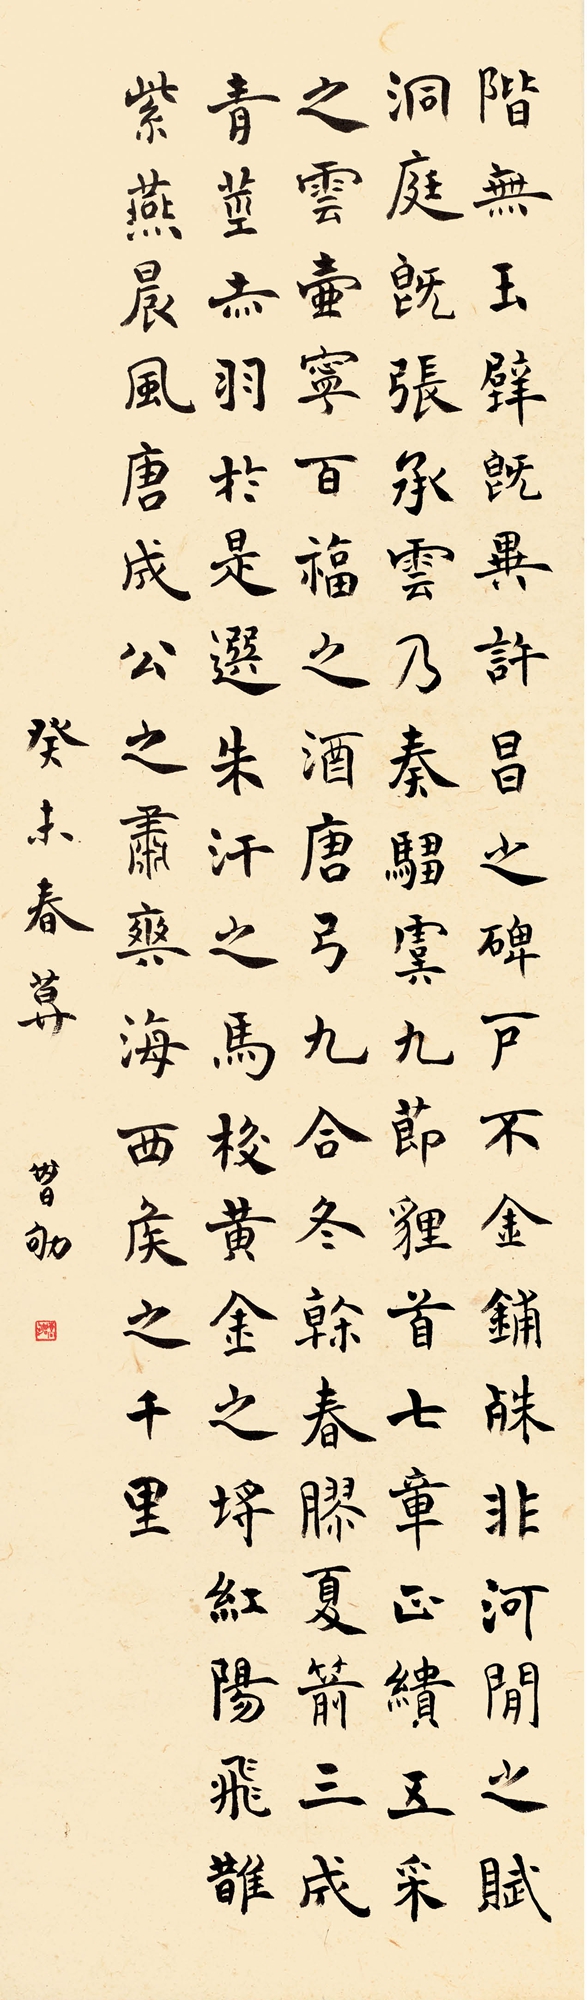 階無玉璧既異許昌之碑戶不金鋪殊非河閒之賦
洞庭既張承雲乃奏騶虞九節貍首七章正繢五采
之雲壺寧百福之酒唐弓九合冬幹春膠夏箭三成
青莖赤羽於是選朱汗之馬校黃金之埒紅陽飛鵲
紫燕晨風唐成公之肅爽海西侯之千里
癸未春暮 曾劬